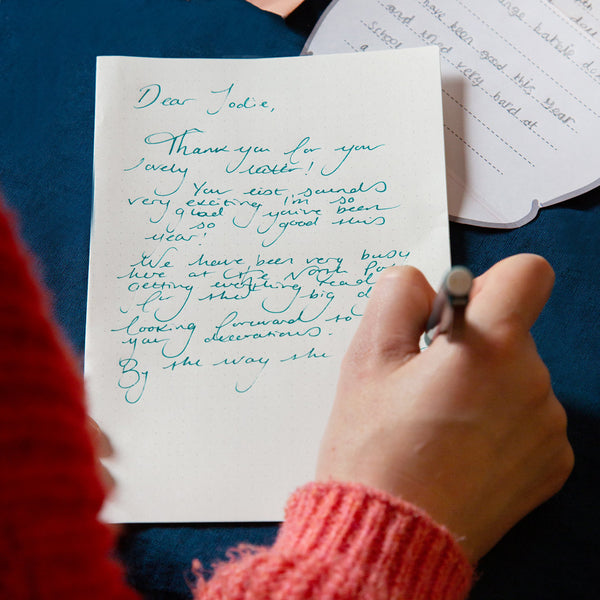 Dear Jodie,
Thank you for your
lovely letter!
Your list sounds
very exciting I'm so
glad you've been
so good this
year!
We have been very busy
here at the North
getting everything
for the big
looking forward to
your decorations.
By the way the
have been good this year
and tried very hard at
school